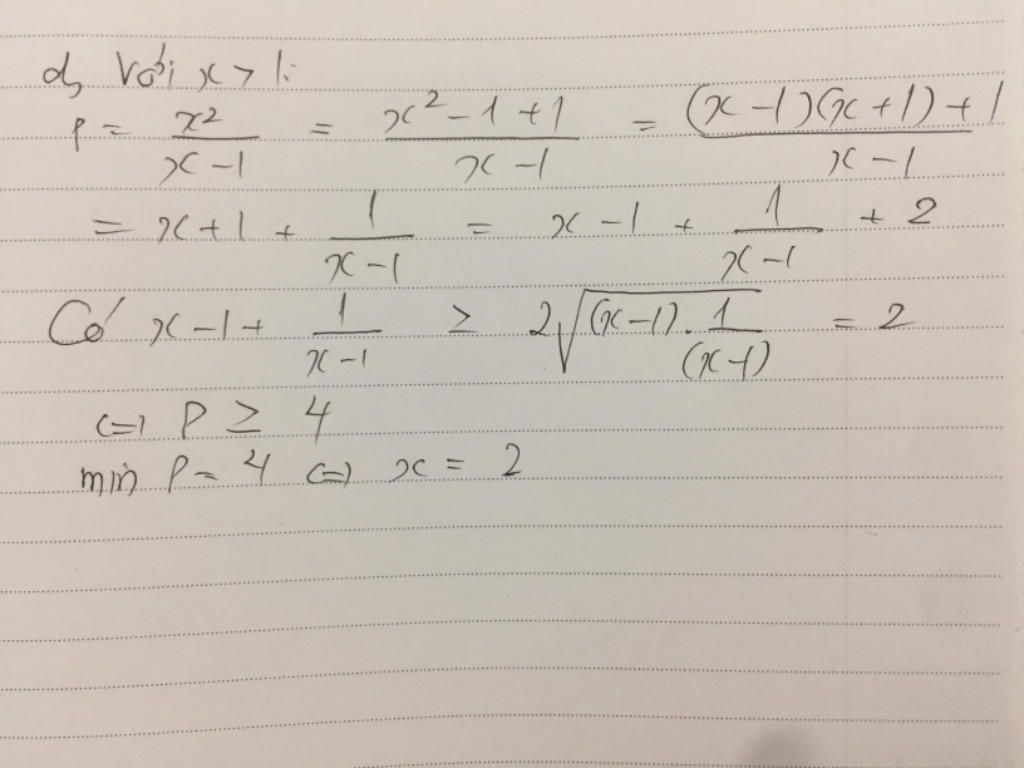 d, Với x > 1:
P = x²/(x - 1) = (x² - 1 + 1)/(x - 1) = ((x - 1)(x + 1) + 1)/(x - 1)
= x + 1 + 1/(x - 1) = x - 1 + 1/(x - 1) + 2
Có x - 1 + 1/(x - 1) ≥ 2√((x - 1) . 1/(x - 1)) = 2
<=> P ≥ 4
min P = 4 <=> x = 2